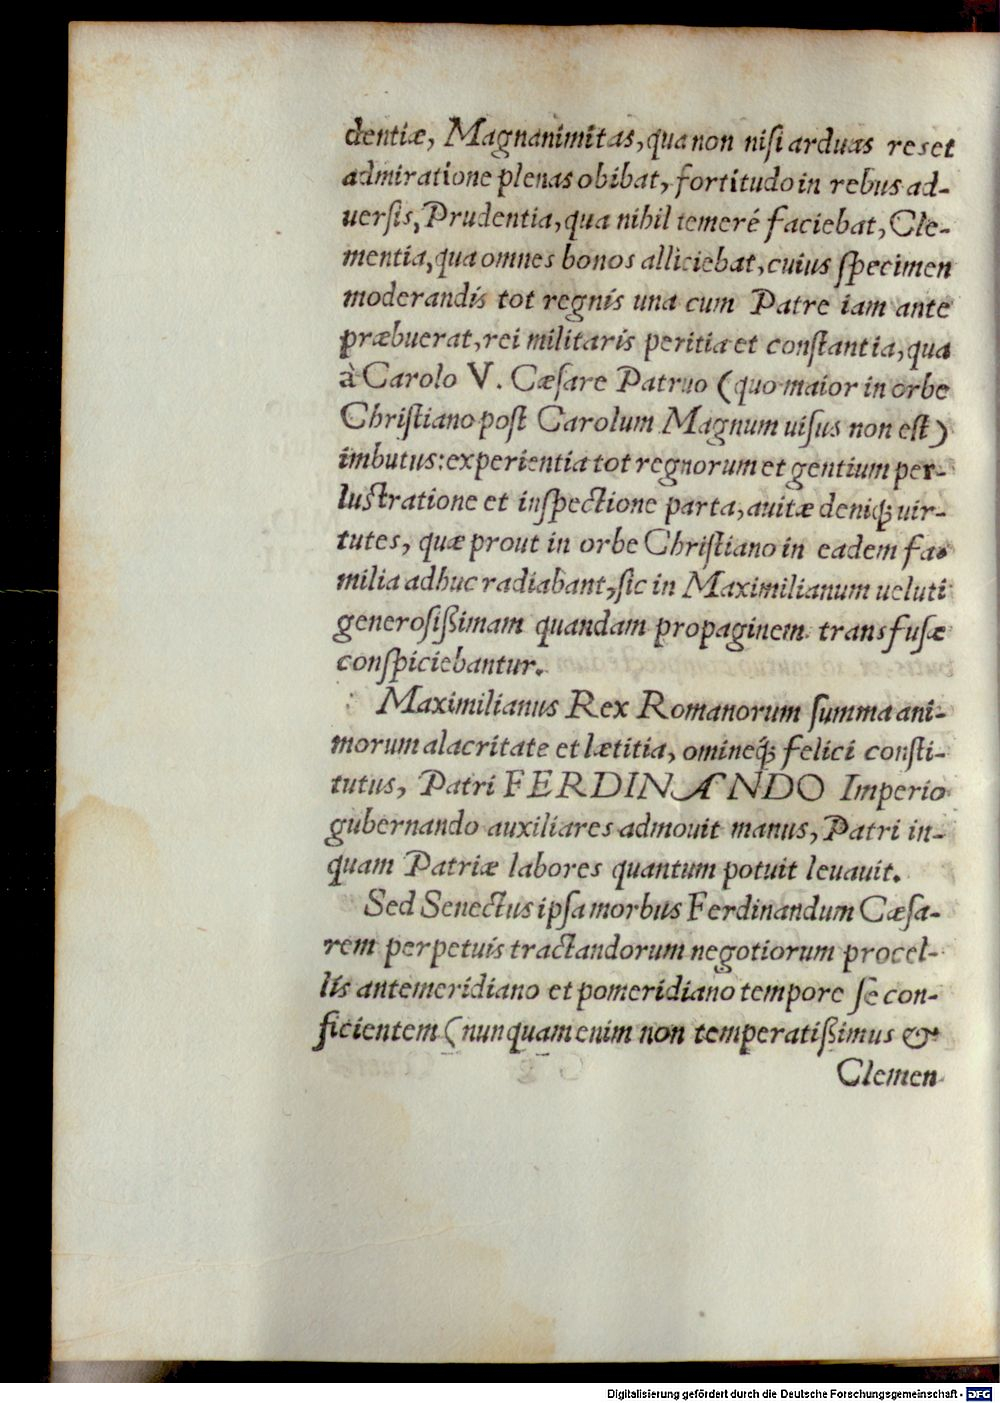 dentiæ, Magnanimitas, qua non nisi arduas res et
admiratione plenas obibat, fortitudo in rebus ad-
uersis, Prudentia, qua nihil temeré faciebat, Cle-
mentia, qua omnes bonos alliciebat, cuius ſpecimen
moderandis tot regnis una cum Patre iam ante
præbuerat, rei militaris peritia et conſtantia, qua
à Carolo V. Cæſare Patruo (quo maior in orbe
Chriſtiano poſt Carolum Magnum uiſus non eſt)
imbutus: experientia tot regnorum et gentium per-
luſtratione et inſpectione parta, auitæ deniqꝫ uir-
tutes, quæ prout in orbe Chriſtiano in eadem fa-
milia adhuc radiabant, ſic in Maximilianum ueluti
generoſißimam quandam propaginem transfuſæ
conſpiciebantur.
Maximilianus Rex Romanorum ſumma ani-
morum alacritate et lætitia, omineqꝫ felici conſti-
tutus, Patri FERDINANDO Imperio
gubernando auxiliares admouit manus, Patri in-
quam Patriæ labores quantum potuit leuauit.
Sed Senectus ipſa morbus Ferdinandum Cæſa-
rem perpetuis tractandorum negotiorum procel-
lis antemeridiano et pomeridiano tempore ſe con-
ficientem (nunquam enim non temperatißimus &
Clemen
Digitalisierung gefördert durch die Deutsche Forschungsgemeinschaft - DFG